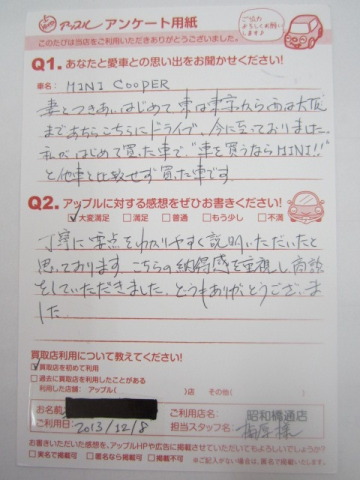 アップル アンケート用紙
ご協力よろしくお願いします♪
このたびは当店をご利用いただきありがとうございました。
Q1. あなたと愛車との思い出をお聞かせください!
車名: MINI COOPER
妻とつきあいはじめて東は東京から西は大阪
まであちらこちらにドライブ、今に至っておりました。
私がはじめて買った車で、"車を買うならMINI!!"
と他車と比較せず買った車です。
Q2. アップルに対する感想をぜひお書きください!
大変満足 満足 普通 もう少し 不満
丁寧に要点をわかりやすく説明いただいたと
思っております。こちらの納得感を重視し商談
をしていただきました。どうもありがとうございま
した
買取店利用について教えてください!
買取店を初めて利用
過去に買取店を利用したことがある
利用した店舗: アップル( )店 その他( )
お名前
ご利用店名: 昭和橋通店
ご利用日: 2013/12/8
担当スタッフ名: 様
お書きいただいた感想を、アップルHPや広告に掲載させていただいてもよろしいでしょうか?
実名で掲載可 匿名なら掲載可 掲載不可
※ご記入がない場合は、匿名で掲載いたします。